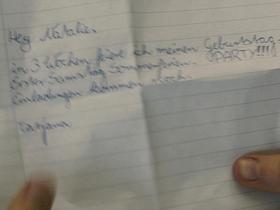 Hey Natalie,
in 3 Wochen feire ich meinen Geburtstag.
(PARTY!!!)
Erster Samstag Sommerferien.
Einladungen kommen noch.
Tatjana